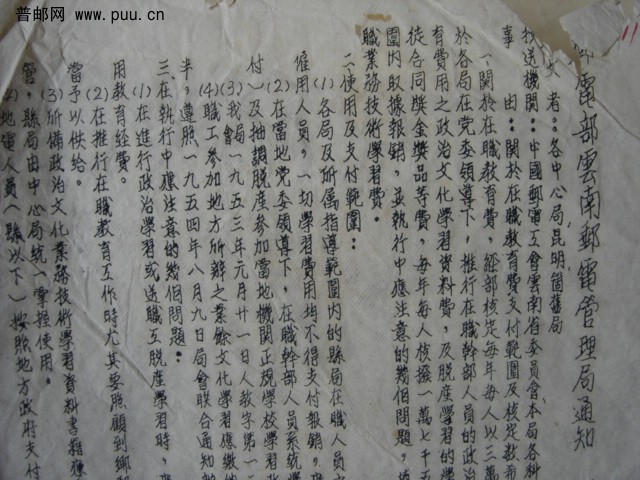 普邮网
www.puu.cn
郵電部雲南郵電管理局通知
受文者:各中心局昆明箇舊局
抄送機關:中國郵電工會雲南省委員會本局各科
事由:關於在職教育費支付範圍及核定數希
一、關於在職教育費,經部核定每年每人以三萬
於各局在党委領導下,推行在職幹部人員的政治
有費用之政治文化學習資料費,及脱產學習的學
徒合同獎金獎品等費,每年每人核撥一萬七千五
圍内取據報銷,並執行中應注意的幾個問題,
職業務技術學習費。
二、使用及支付範圍:
(1)各局及所属指導範圍内的縣局在職人員
僱用人員,一切學習費用均不得支付報銷,
(2)在當地党委領導下,在職幹部人員系統學
付)及抽調脱產参加當地機關正規學校學習
(3)我會一九五三年元月廿一日人教字第一
(4)職工参加地方所辦之業餘文化學習應缴
半,遵照一九五四年八月九日局會联合通知
三、在執行中應注意的幾個問題:
(1)在進行政治學習或送職工脱產學習時,
用教育經費。
(2)在推行在職教育工作時尤其要照顧到鄉郵
當予以供給。
(3)所備政治文化業務技術學習資料書籍應
管,縣局由中心局統一掌握使用。
(4)地電人員(縣以下)按照地方政府支付